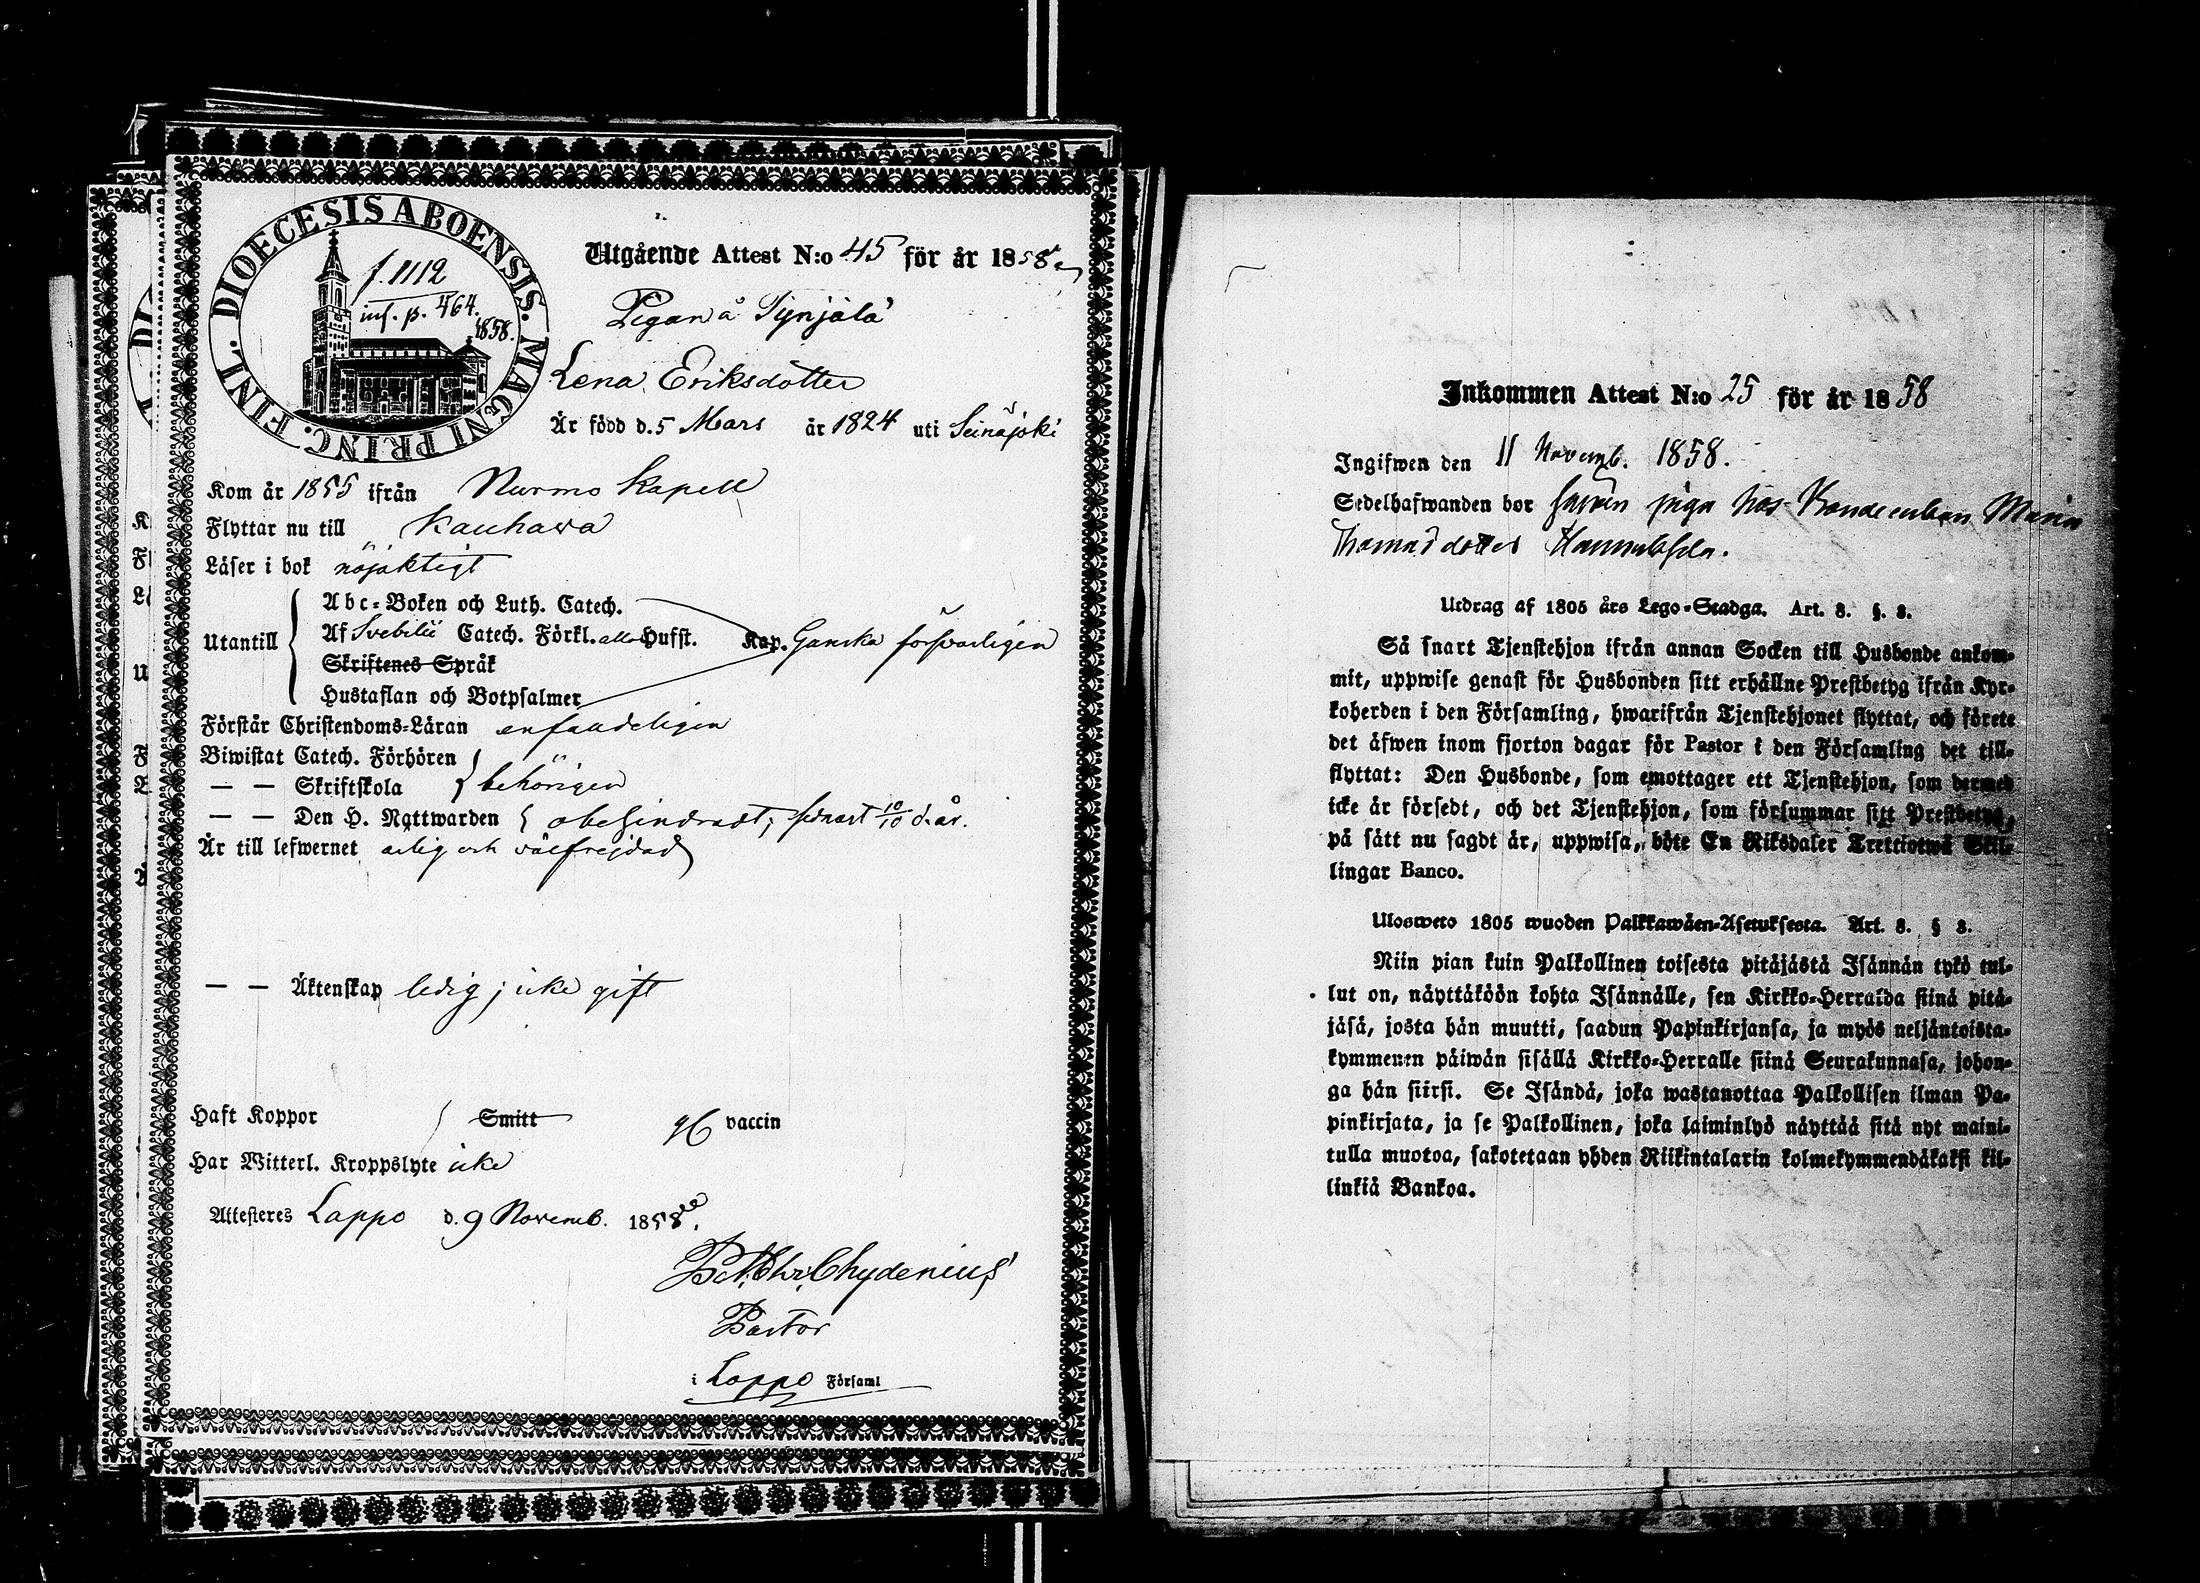 DIOECESIS ABOENSIS. MAGNI PRINC. FINL.
f. 1112
inf. p. 464.
1858.
Utgående Attest N:o 45 för år 1858
Pigan å Tynjälä
Lena Eriksdotter
Är född d. 5 Mars år 1824 uti Seinäjoki
Kom år 1855 ifrån Nurmo Kapell
Flyttar nu till Kauhava
Läser i bok nöjaktigt
Utantill
Abc-Boken och Luth. Catech.
Af Svebilii Catech. Förkl. alla Hufst. Kap. Ganska försvarligen
Skriftenes Språk
Hustaflan och Botpsalmer
Förstår Christendoms-Läran enfaldeligen
Biwistat Catech. Förhören
— — Skriftskola behörigen
— — Den H. Nattwarden obehindradt, senast 10/10 d. år.
Är till lefwernet ärlig och välfrejdad
— — Äktenskap ledig; icke gift
Haft Koppor Smitt vaccin
Har Witterl. Kroppslyte icke
Attesteres Lappo d. 9 Novemb. 1858
Pet. Chr. Chydenius
Pastor
i Lappo Församl
Inkommen Attest N:o 25 för år 1858
Ingifwen den 11 Novemb. 1858.
Sedelhafwanden bor såsom piga hos Bondeenkan Maria
Thomasdotter
Utdrag af 1805 års Lego-Stadga. Art. 8. §. 8.
Så snart Tjenstehjon ifrån annan Socken till Husbonde ankom-
mit, uppwise genast för Husbonden sitt erhållne Prestbetyg ifrån Kyr-
koherden i den Församling, hwarifrån Tjenstehjonet flyttat, och förete
det äfwen inom fjorton dagar för Pastor i den Församling det till-
flyttat: Den Husbonde, som emottager ett Tjenstehjon, som dermed
icke är försedt, och det Tjenstehjon, som försummar sitt Prestbetyg,
på sätt nu sagdt är, uppwisa, böte En Riksdaler Trettiotwå Skil-
lingar Banco.
Ulosweto 1805 wuoden Palkkawäen-Asetuksesta. Art. 8. § 8.
Niin pian kuin Palkollinen toisesta pitäjästä Isännän tykö tul-
lut on, näyttäköön kohta Isännälle, sen Kirkko-Herralda siinä pitä-
jäsä, josta hän muutti, saadun Papinkirjansa, ja myös neljäntoista-
kymmenen päiwän sisällä Kirkko-Herralle siinä Seurakunnasa, johon-
ga hän siirsi. Se Isändä, joka wastanottaa Palkollisen ilman Pa-
pinkirjata, ja se Palkollinen, joka laiminlyö näyttää sitä nyt maini-
tulla muotoa, sakotetaan yhden Riikintalarin kolmekymmendäkaksi kil-
linkiä Bankoa.